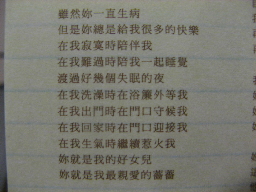 雖然妳一直生病
但是妳總是給我很多的快樂
在我寂寞時陪伴我
在我難過時陪我一起睡覺
渡過好幾個失眠的夜
在我洗澡時在浴簾外等我
在我出門時在門口守候我
在我回家時在門口迎接我
在我生氣時繼續惹火我
妳就是我的好女兒
妳就是我最親愛的薔薔